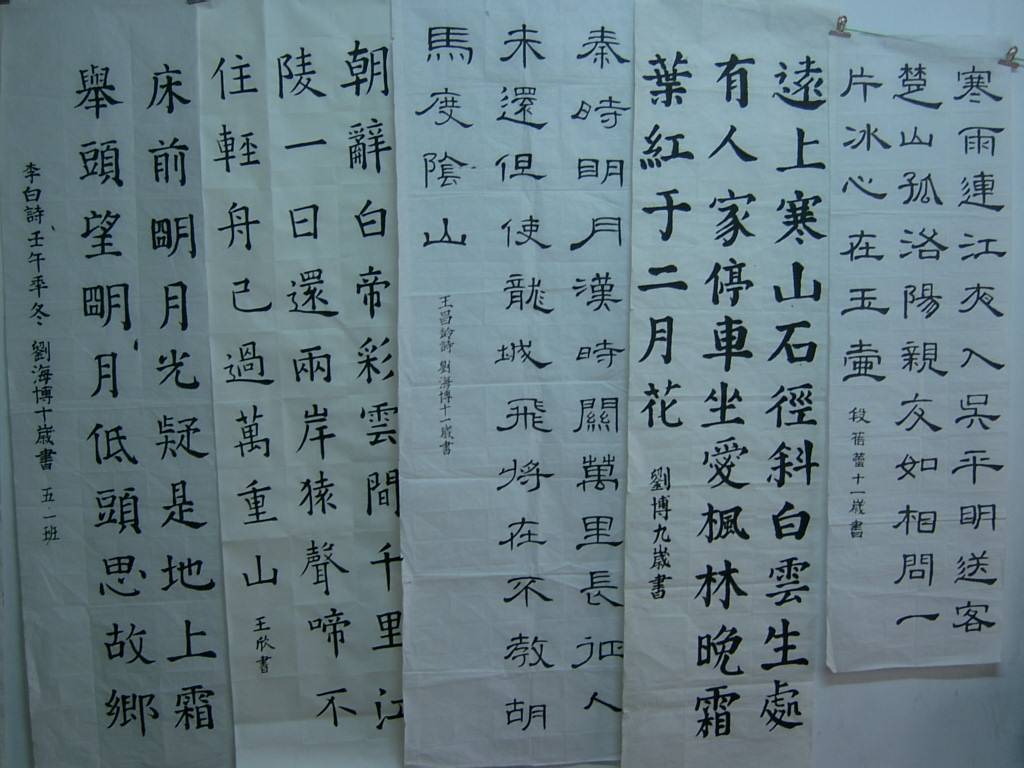 寒雨連江夜入吳平明送客
楚山孤洛陽親友如相問一
片冰心在玉壺
段蓓蕾十一歲書
遠上寒山石徑斜白雲生處
有人家停車坐愛楓林晚霜
葉紅于二月花
劉博九歲書
秦時明月漢時關萬里長征人
未還但使龍城飛將在不教胡
馬度陰山
王昌齡詩 劉海博十一歲書
朝辭白帝彩雲間千里江
陵一日還兩岸猿聲啼不
住輕舟已過萬重山
王欣書
床前明月光疑是地上霜
舉頭望明月低頭思故鄉
李白詩壬午年冬 劉海博十歲書 五一班